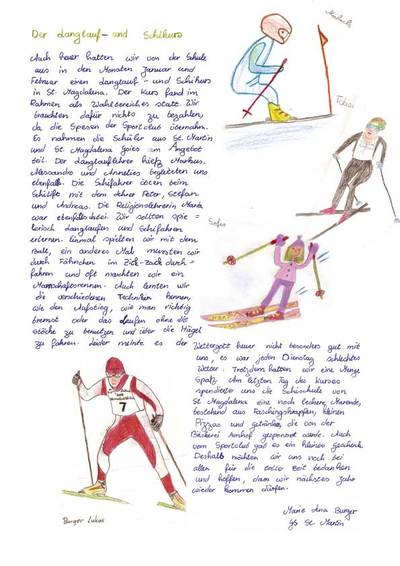 Der Langlauf- und Schikurs
Auch heuer hatten wir von der Schule
aus in den Monaten Januar und
Februar einen Langlauf- und Schikurs
in St. Magdalena. Der Kurs fand im
Rahmen als Wahlbereiches statt. Wir
brauchten dafür nichts zu bezahlen,
da die Spesen der Sportclub übernahm.
Es nahmen die Schüler aus St. Martin
und St. Magdalena Gsies am Angebot
teil. Der Langlauflehrer hieß Markus.
Alessandro und Annelies begleiteten uns
ebenfalls. Die Schifahrer übten beim
Schilift mit dem Lehrer Peter, Stefan
und Andreas. Die Religionslehrerin Marta
war ebenfalls dabei. Wir sollten spie=
lerisch Langlaufen und Schifahren
erlernen. Einmal spielten wir mit dem
Ball, ein anderes Mal mussten wir
durch Fähnchen im Zick-Zack durch=
fahren und oft machten wir ein
Mannschaftsrennen. Auch lernten wir
die verschiedenen Techniken kennen,
wie den Aufstieg, wie man richtig
bremst oder das Laufen ohne die
Stöcke zu benutzen und über die Hügel
zu fahren. Leider meinte es der
Wettergott heuer nicht besonders gut mit
uns, es war jeden Dienstag schlechtes
Wetter. Trotzdem hatten wir eine Menge
Spaß. Am letzten Tag des Kurses
spendierte uns die Schischule von
St. Magdalena eine noch leckere Marende,
bestehend aus Faschingskrapfen, kleinen
Pizzas und Getränke, die von der
Bäckerei Amhof gesponsert wurde. Auch
vom Sportclub gab es ein kleines Geschenk.
Deshalb möchten wir uns noch bei
allen für die tolle Zeit bedanken
und hoffen, dass wir nächstes Jahr
wieder kommen dürfen.
Marie Ana Burger
GS St. Martin
Tobias
Sofia
7
Burger Lukas